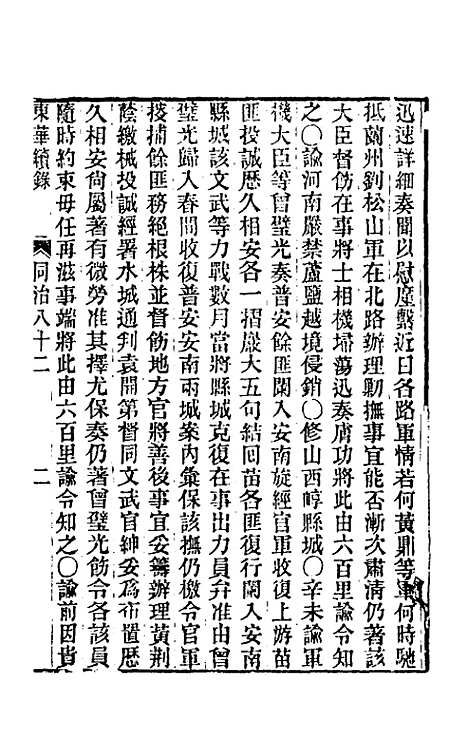 迅速詳細奏聞以慰廑繫近日各路軍情若何黃鼎等軍何時馳
抵蘭州劉松山軍在北路辦理勦撫事宜能否漸次肅清仍著該
大臣督飭在事將士相機埽蕩迅奏膚功將此由六百里諭令知
之〇諭河南嚴禁蘆鹽越境侵銷〇修山西崞縣城〇辛未諭軍
機大臣等曾璧光奏普安餘匪闌入安南旋經官軍收復上游苗
匪投誠歷久相安各一摺巖大五句結回苗各匪復行闌入安南
縣城該文武等力戰數月當將縣城克復在事出力員弁准由曾
璧光歸入春間收復普安安南兩城案內彙保該撫仍檄令官軍
搜捕餘匪務絕根株並督飭地方官將善後事宜妥籌辦理黃荊
蔭繳械投誠經署水城通判袁開第督同文武官紳妥爲布置歷
久相安尚屬著有微勞准其擇尤保奏仍著曾璧光飭令各該員
隨時約束毋任再滋事端將此由六百里諭令知之〇諭前因貴
東華續錄
同治八十二
二